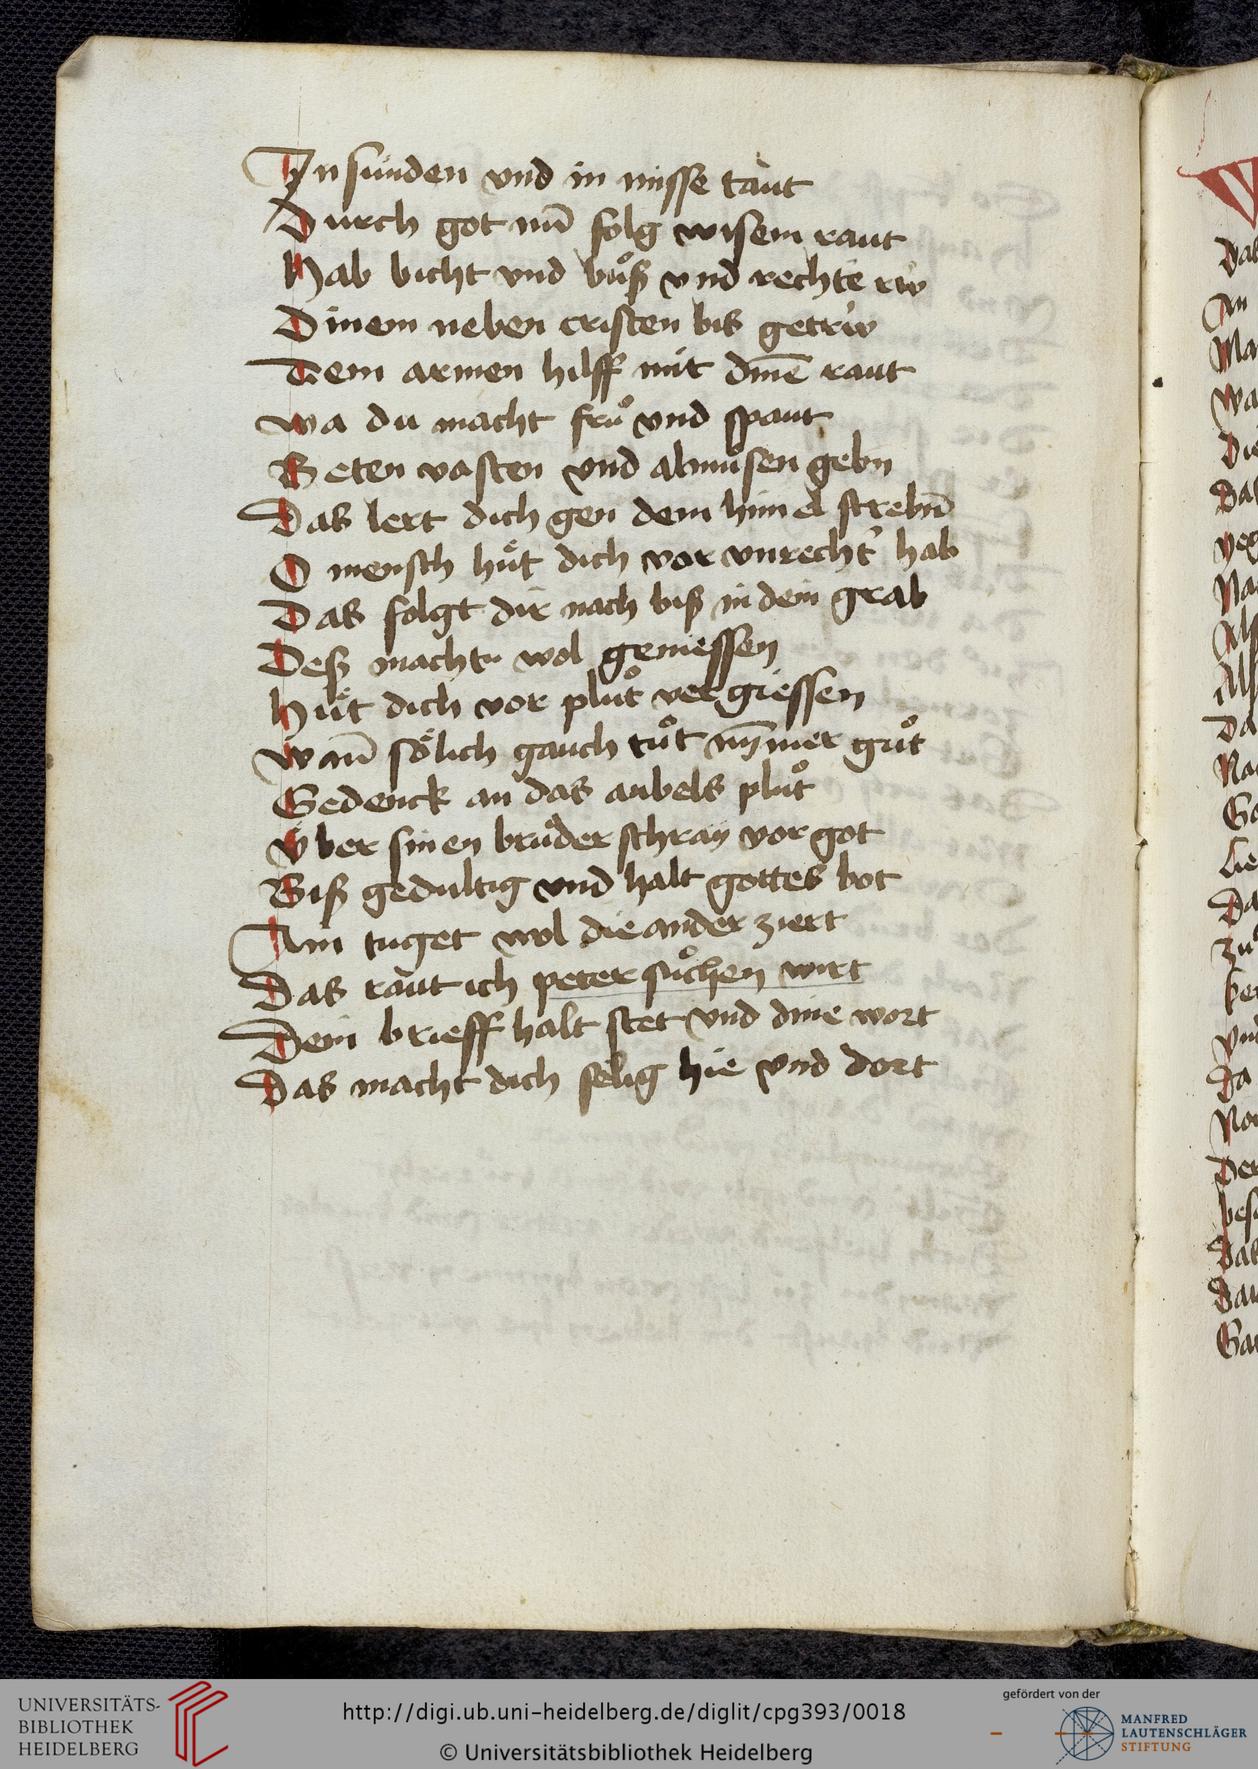 In sünden vnd in misse taut
Durch got nū folg wisem raut
Hab bicht vnd buͦß vnd rechte rw
Dinem neben cristen bis getrw
Dem armen hilff mit dinē raut
wa du macht fruͦ vnd spaut
Beten vasten vnd almuͦsen gebn
Das lert dich gen dem himel strebn̄
O mensch huͤt dich vor vnrecht' hab
Das folgt dir nach biß in dein grab
Deß macht wol geniessen
Huͤt dich vor pluͦt vergiessen
wan̄ soͤlich gauch tuͦt nym̄er guͦt
Gedenck an das aubels pluͦt
Vͤber sinen bruͦder schray vor got
Biß gedultig vnd halt gottes bot
Ain tuget wol die ander ziert
Das raut ich peter suͦchen wirt
Dein brieff halt stet vnd dine wort
Das macht dich selig hie vnd dort
UNIVERSITÄTS-
BIBLIOTHEK
HEIDELBERG
http://digi.ub.uni-heidelberg.de/diglit/cpg393/0018
© Universitätsbibliothek Heidelberg
gefördert von der
MANFRED
LAUTENSCHLÄGER
STIFTUNG